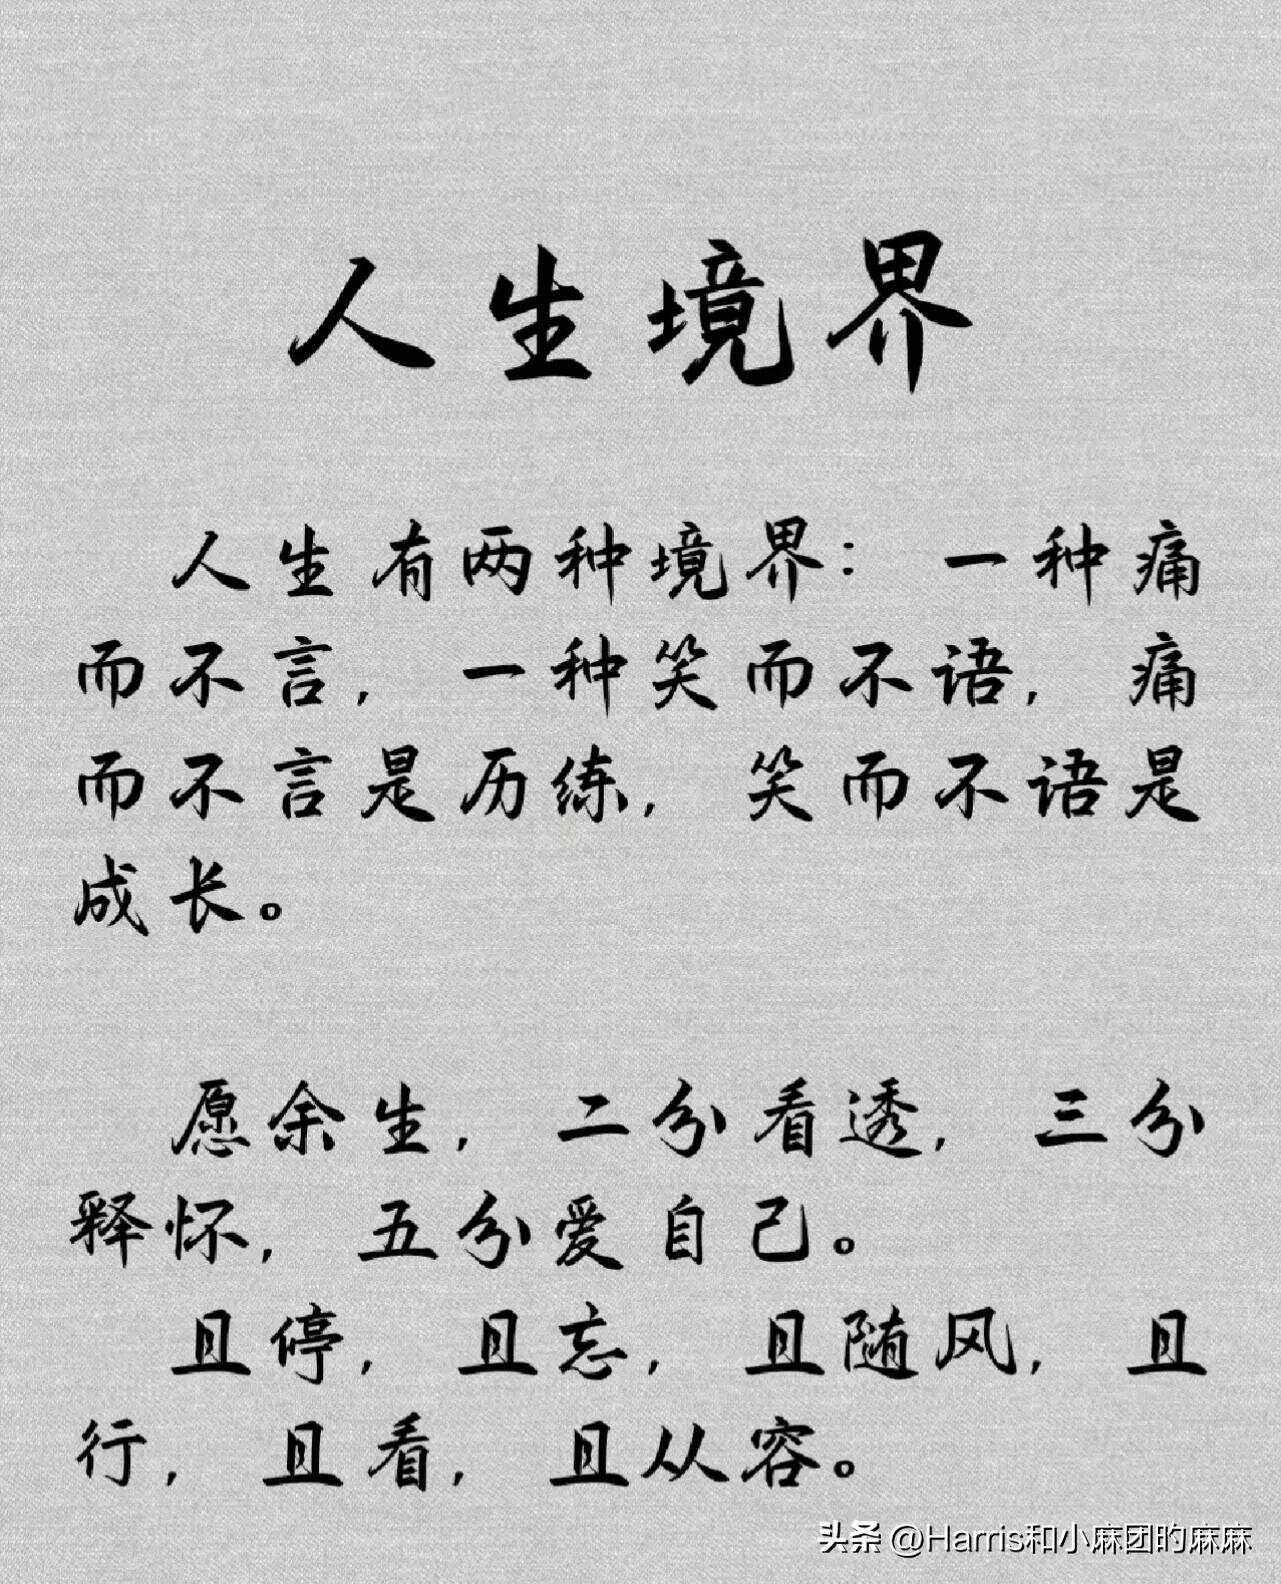 人生境界
人生有两种境界：一种痛
而不言，一种笑而不语，痛
而不言是历练，笑而不语是
成长。
愿余生，二分看透，三分
释怀，五分爱自己。
且停，且忘，且随风，且
行，且看，且从容。
头条 @Harris和小麻团旳麻麻